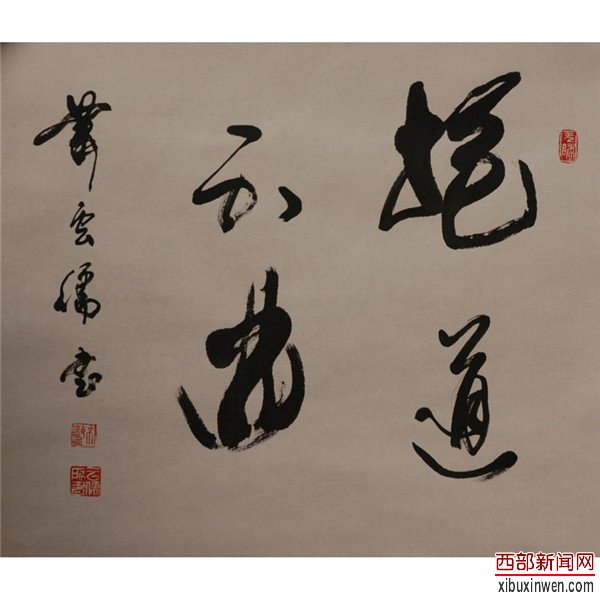 抱道
不曲
蕭雲儒书
西部新闻网
xibuxinwen.com